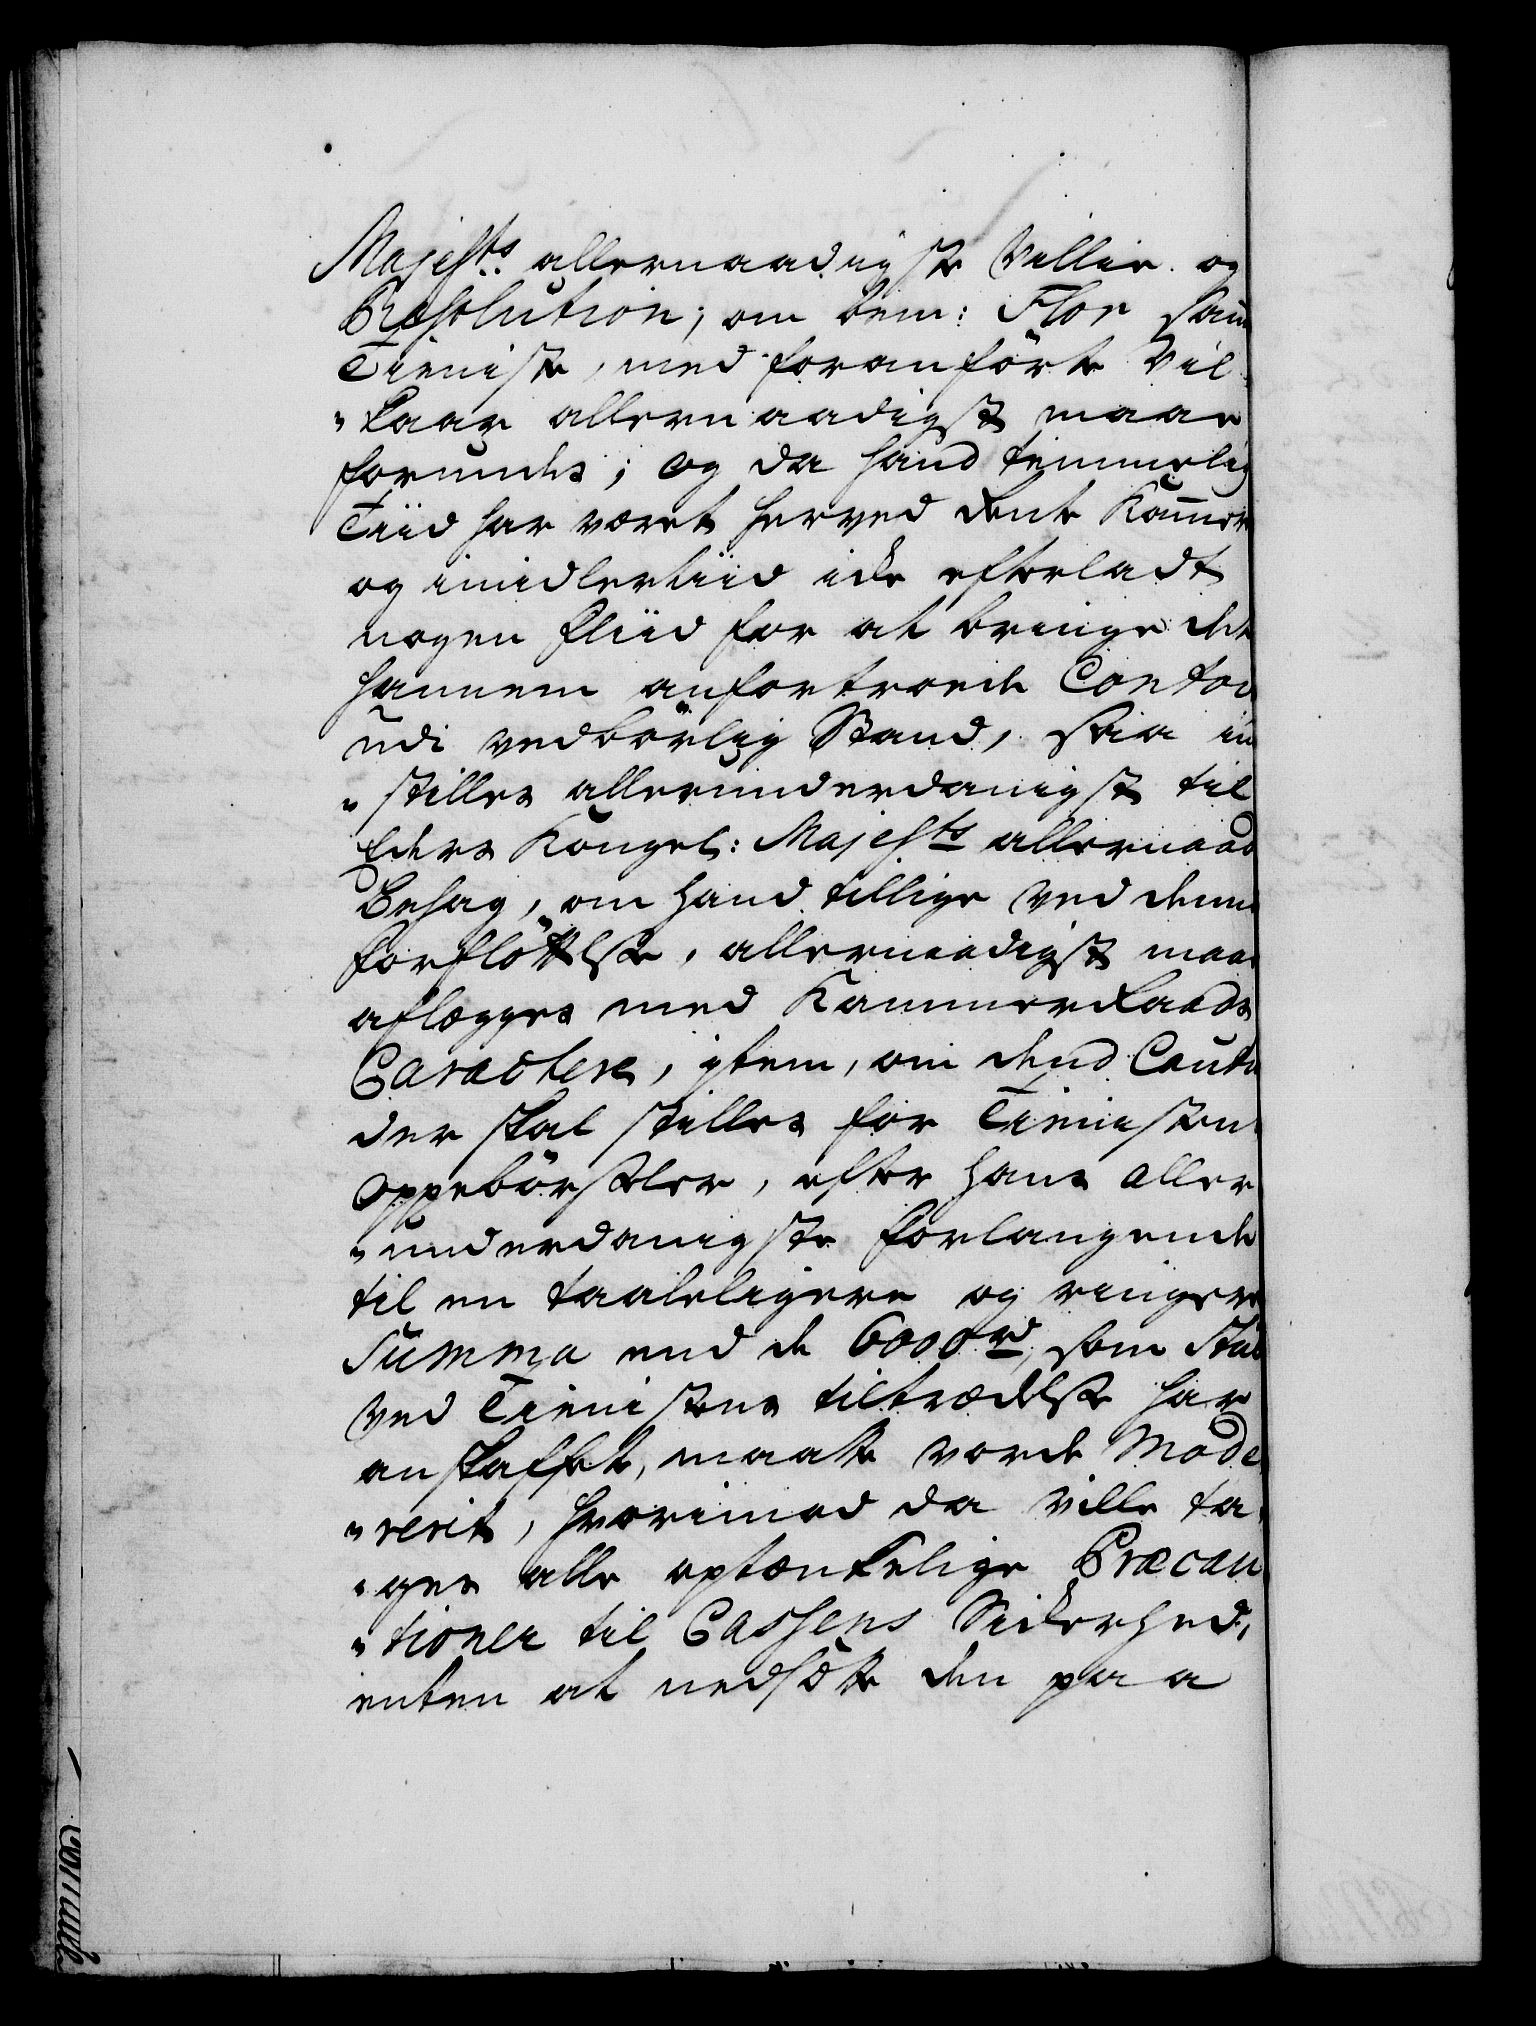 Majesh<sup>ts</sup> allernaadigste Villie og
Resolution, om bem: Flor samme
Tieniste, med foranförte Vil-
"kaar allernaadigst maae
forundes; og da hand temmelig
Tiid har været herved Rente Kammer
og imidlertiid icke efterladt
nogen fliid for at bringe det
hannem anfortroede Contoir
udi vedbörlig Stand, saa in
"stilles allerunderdanigst til
Eders Kongel: Majesh<sup>ts</sup> allernaad
Behag, om hand tillige ved denne
forflöttelse, allernaadigst maae
aflægges med Kammerraads
Caractere, item, om dend Cauti
der skal stilles for Tienisten
Oppebörseler, efter hans aller
"underdanigste forlangende
til en taaleligere og ringere
Summa end de 6000 rd, som
ved Tienistens tiltrædelse har
anskaffet, maatte vorde Mode
"rerit, hvorimod da ville ta
"ges alle optænkelige Præcau
"tioner til Cassens Sickerhed,
enten at nedsætte den paa